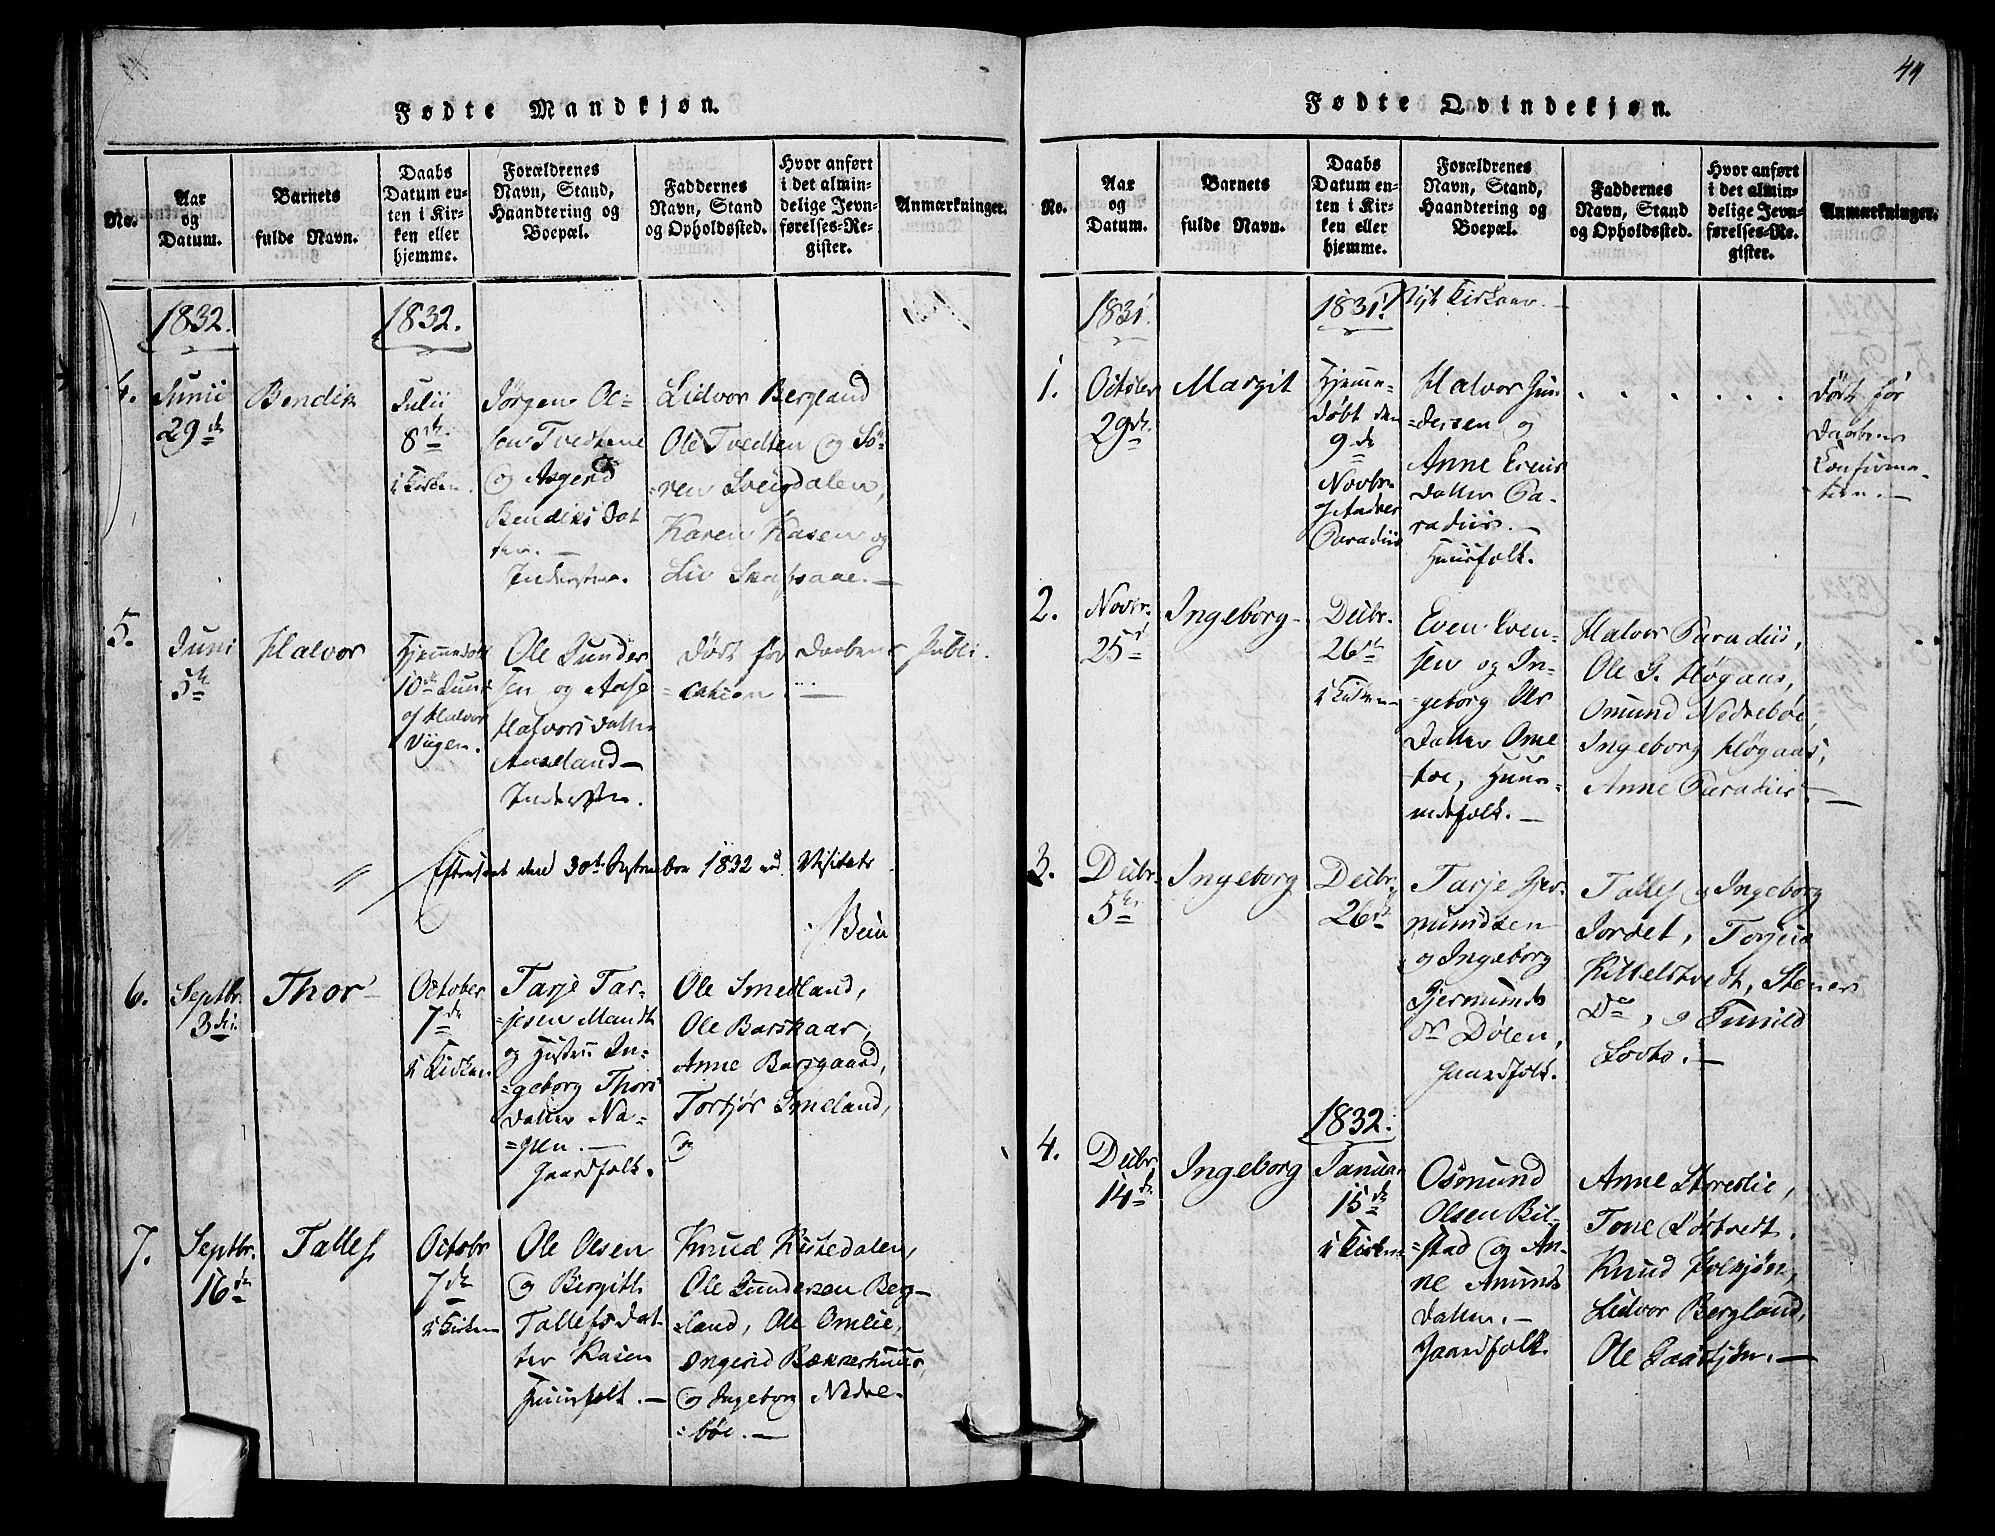 44
Fødte Mandkjøn.
No.
Aar og Datum.
Barnets fulde Navn.
Daabs Datum enten i Kirken eller hjemme.
Forældrenes Navn, Stand, Haandtering og Boepæl.
Faddernes Navn, Stand og Opholdssted.
Hvor anført i det almindelige Jevnførelses-Register.
Anmærkninger.
1832.
1832.
4.
Junii
29de
Bendik
Julii
8de
i Kirken.
Jørgen Ol=
sen Tvedtene
og Asgerd
Bendiks Dat
ter. —
Inderster.
Lidvor Bergland
Ole Tvedten og Sö=
=ren Sveigdalen,
Karen Kasen og
Liv Skafsaae. —
5.
Juni
5te
Halvor
Hjemmedöbt
10de Juni
af Halvor
Viigen.
Ole Gunder
sen og Aase
Halvorsdatter
Auseland —
Inderster.
Dödt för Daabens Publi.
=cation. —
Efterseet den 30te September 1832 ved Visitats
6.
Septbr.
3die
Thor
October
7de
i Kirken.
Tarje Tar=
=jesen Mandt
og Hustru In=
=geborg Thors
datter Na=
=gsen. —
Gaardfolk.
Ole Smedland,
Ole Barskaar,
Anne Barsgaard,
Torbjør Smeland,
og
7.
Septbr.
16de
Tallef
Octobr
7de
i Kirken
Ole Olsen
og Bergith
Tallefsdat
ter Kasen
Huusfolk. —
Knud Kistedalen,
Ole Gundersen Berg=
land, Ole Omlie,
Ingerid Bækkerhuus,
og Ingeborg Nedre=
=böe. —
Fødte Qvindekjøn.
No.
Aar og Datum.
Barnets fulde Navn.
Daabs Datum enten i Kirken eller hjemme.
Forældrenes Navn, Stand, Haandtering og Boepæl.
Faddernes Navn, Stand og Opholdssted.
Hvor anført i det almindelige Jevnførelses-Register.
Anmærkninger.
1831.
1831. Nyt Kirkeaar. —
1.
October
29de
Margit
Hjemme=
döbt den
9de
Novbr.
af Anders
Paradiis
Halvor Gun
=dersen og
Anne Evens
datter Pa=
radiis. —
Huusfolk.
Dödt för
Daabens
Confirma=
tion. —
2.
Novbr.
25de
Ingeborg
Decbr.
26de
i Kirken
Even Even=
sen og In=
=geborg
Datter Ome
toe, Huus=
mdsfolk. —
Halvor Paradiis,
Ole G. Høgaas,
Omund Nedreböe,
Ingeborg Høgaas,
Anne Paradiis. —
3.
Decbr.
5te
Ingeborg
Decbr.
26de
Tarje Gjer
mundsen
og Ingeborg
Gjermunds
Dr Dölen,
Gaardfolk.
Tallef og Ingeborg
Jordet, Torjus
Kittelstvedt, Stener
Do, og Gunild
Lovto. —
1832.
4.
Decbr.
14de
Ingeborg
Januar
15de
i Kirken
Osmund
Olsen Bil=
=stad og An=
ne Amunds
datter. —
Gaardfolk.
Anne Storeslie,
Tone Lörtvedt,
Knud Holsjön,
Lidvor Bergland,
Ole Gaasjön. —